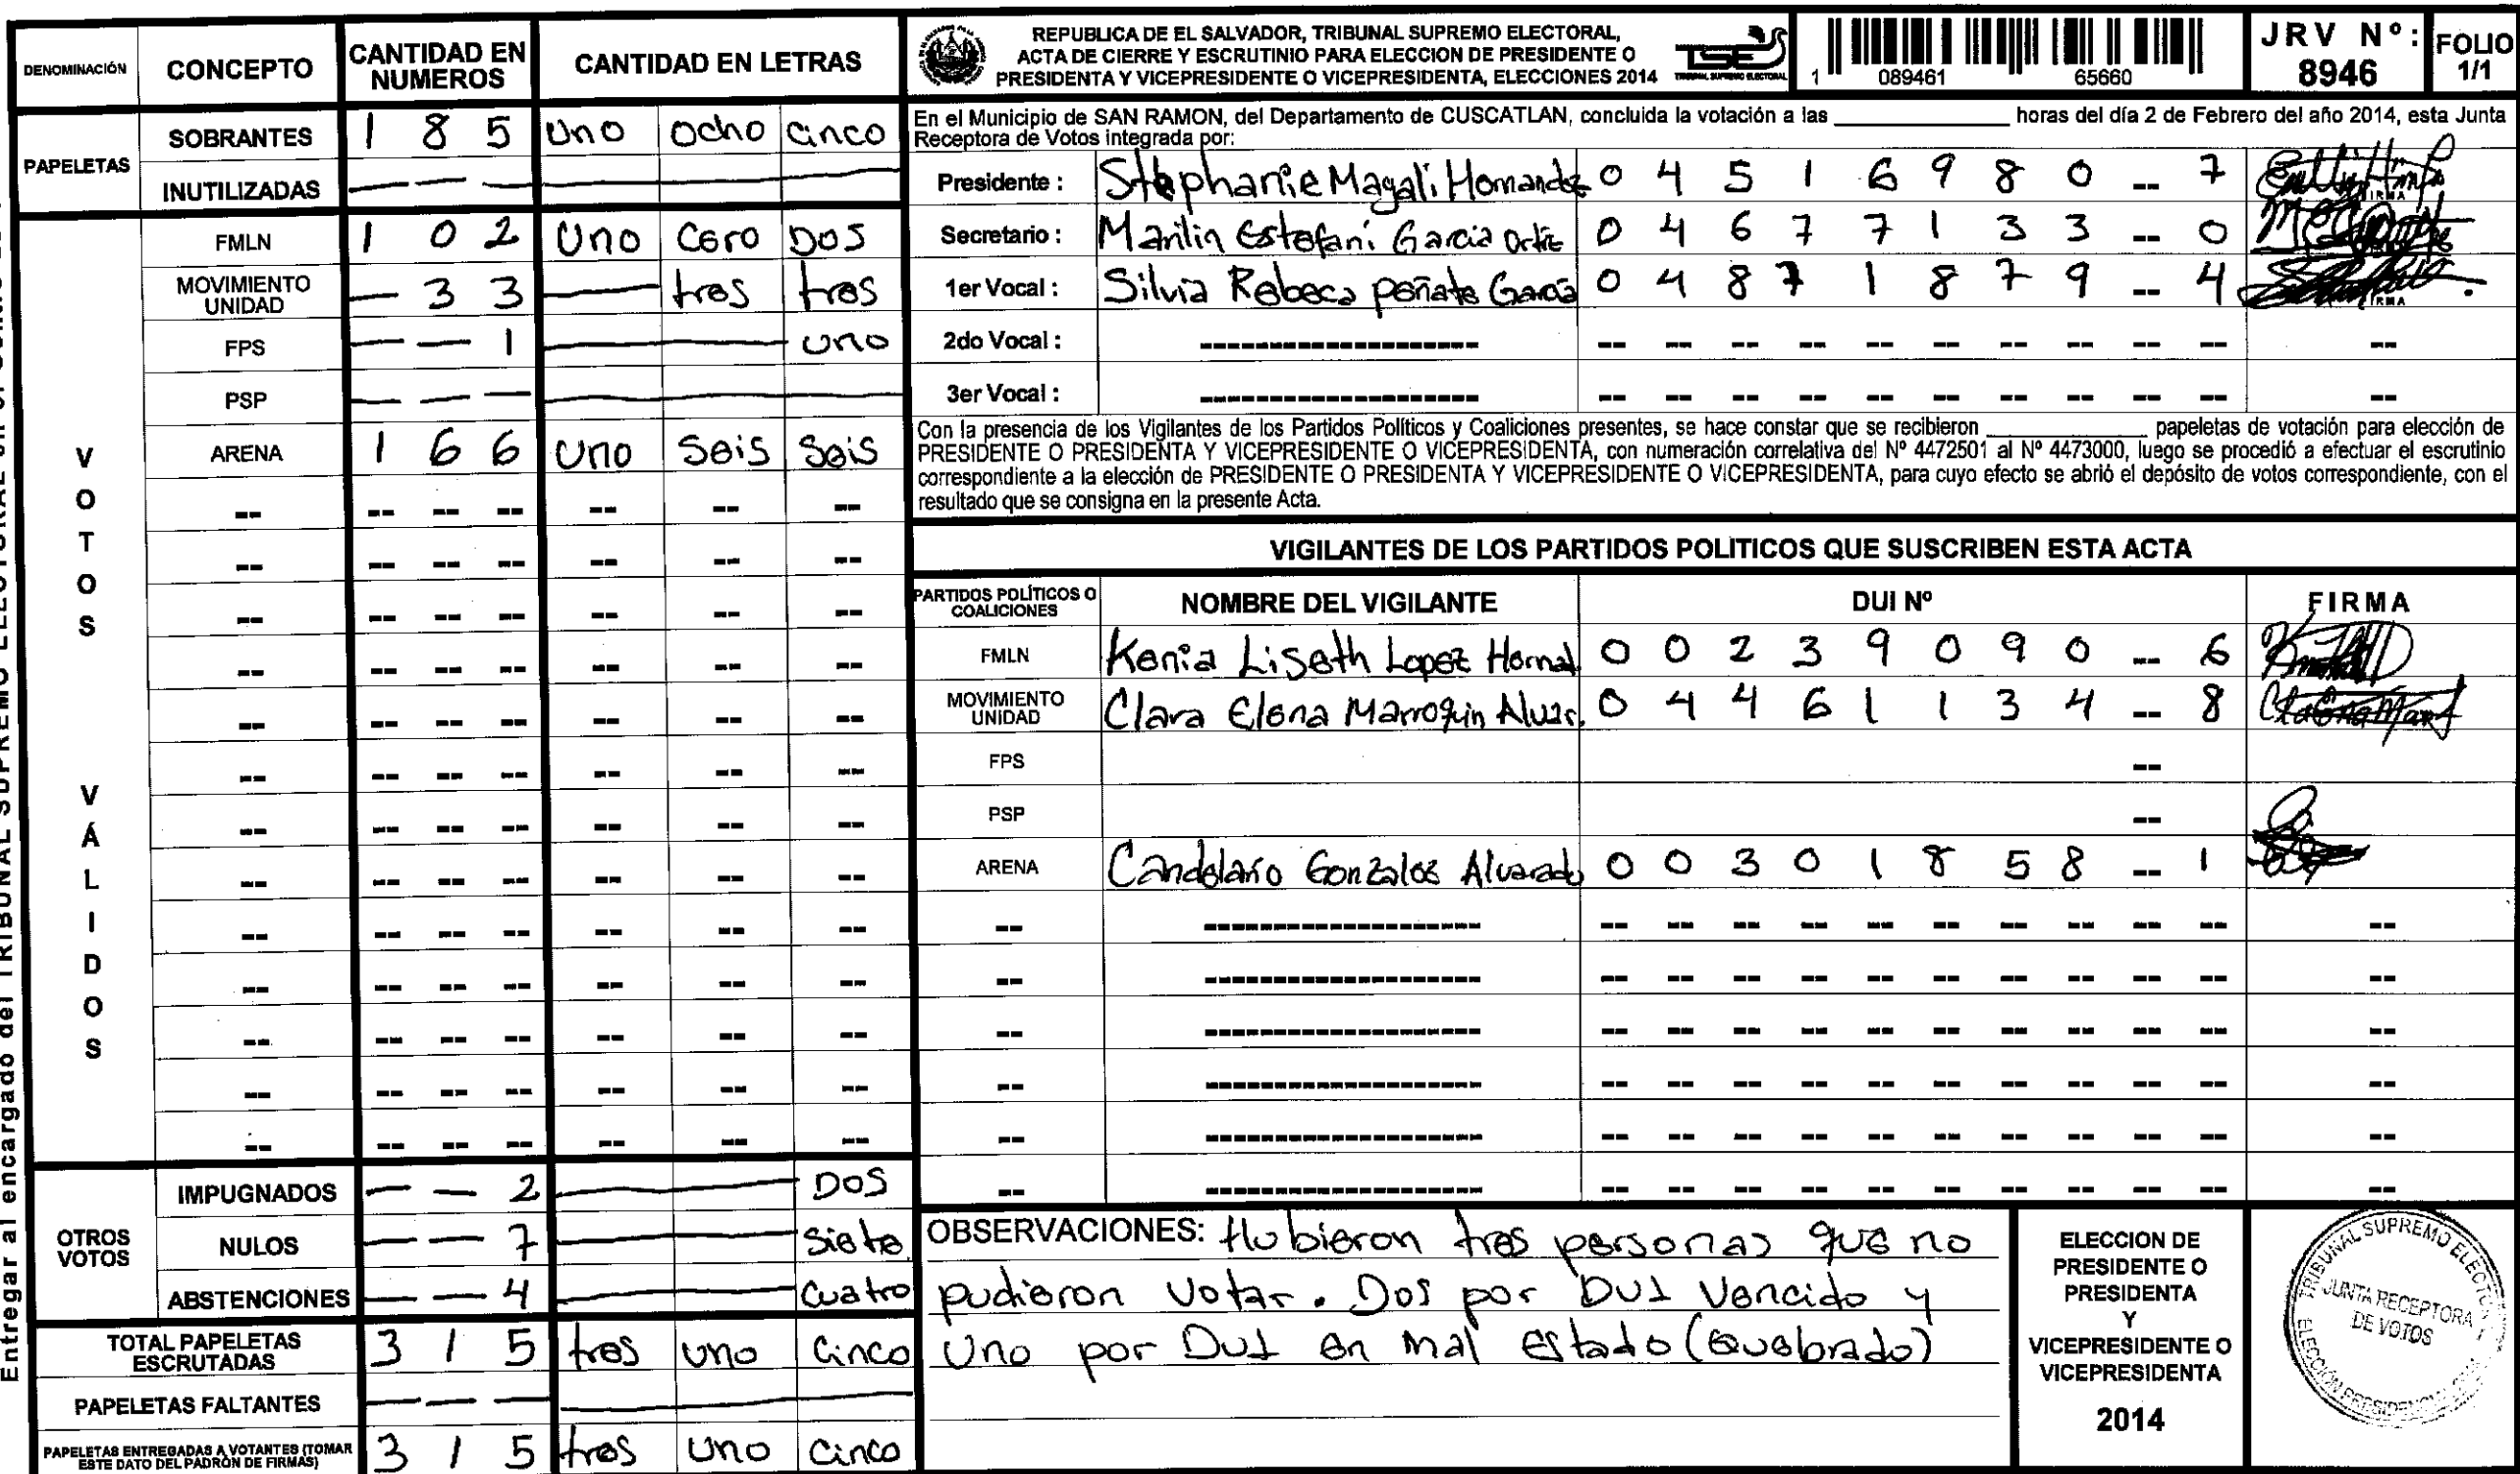 Entregar al encargado del TRIBUNAL SUPREMO ELECTORAL en
DENOMINACIÓN CONCEPTO CANTIDAD EN NUMEROS CANTIDAD EN LETRAS
PAPELETAS
SOBRANTES 1 8 5 Uno Ocho Cinco
INUTILIZADAS — — —
VOTOS VÁLIDOS
FMLN 1 0 2 Uno Cero Dos
MOVIMIENTO UNIDAD — 3 3 — tres tres
FPS — — 1 — uno
PSP — — —
ARENA 1 6 6 Uno Seis Seis
OTROS VOTOS
IMPUGNADOS — — 2 — DOS
NULOS — — 7 — Siete
ABSTENCIONES — — 4 — Cuatro
TOTAL PAPELETAS ESCRUTADAS 3 1 5 tres uno Cinco
PAPELETAS FALTANTES — — —
PAPELETAS ENTREGADAS A VOTANTES (TOMAR ESTE DATO DEL PADRÓN DE FIRMAS) 3 1 5 tres Uno Cinco
REPUBLICA DE EL SALVADOR, TRIBUNAL SUPREMO ELECTORAL,
ACTA DE CIERRE Y ESCRUTINIO PARA ELECCION DE PRESIDENTE O
PRESIDENTA Y VICEPRESIDENTE O VICEPRESIDENTA, ELECCIONES 2014
TSE
TRIBUNAL SUPREMO ELECTORAL
1 089461 65660
JRV Nº: 8946
FOLIO 1/1
En el Municipio de SAN RAMON, del Departamento de CUSCATLAN, concluida la votación a las ____________ horas del día 2 de Febrero del año 2014, esta Junta
Receptora de Votos integrada por:
Presidente : Stephanie Magali Hernandez 0 4 5 1 6 9 8 0 -- 7
Secretario : Marilin Estefani Garcia Ortiz 0 4 6 7 7 1 3 3 -- 0
1er Vocal : Silvia Rebeca Peñate Garcia 0 4 8 7 1 8 7 9 -- 4
2do Vocal :
3er Vocal :
Con la presencia de los Vigilantes de los Partidos Políticos y Coaliciones presentes, se hace constar que se recibieron ____________ papeletas de votación para elección de
PRESIDENTE O PRESIDENTA Y VICEPRESIDENTE O VICEPRESIDENTA, con numeración correlativa del Nº 4472501 al Nº 4473000, luego se procedió a efectuar el escrutinio
correspondiente a la elección de PRESIDENTE O PRESIDENTA Y VICEPRESIDENTE O VICEPRESIDENTA, para cuyo efecto se abrió el depósito de votos correspondiente, con el
resultado que se consigna en la presente Acta.
VIGILANTES DE LOS PARTIDOS POLITICOS QUE SUSCRIBEN ESTA ACTA
PARTIDOS POLÍTICOS O COALICIONES NOMBRE DEL VIGILANTE DUI Nº FIRMA
FMLN Kenia Liseth Lopez Hernad 0 0 2 3 9 0 9 0 -- 6
MOVIMIENTO UNIDAD Clara Elena Marroquin Alvar. 0 4 4 6 1 1 3 4 -- 8
FPS --
PSP --
ARENA Candelario Gonzales Alvarado 0 0 3 0 1 8 5 8 -- 1
OBSERVACIONES: Hubieron tres personas que no
pudieron Votar. Dos por DUI Vencido y
Uno por DUI en mal Estado (Quebrado)
ELECCION DE
PRESIDENTE O
PRESIDENTA
Y
VICEPRESIDENTE O
VICEPRESIDENTA
2014
TRIBUNAL SUPREMO
JUNTA RECEPTORA
DE VOTOS